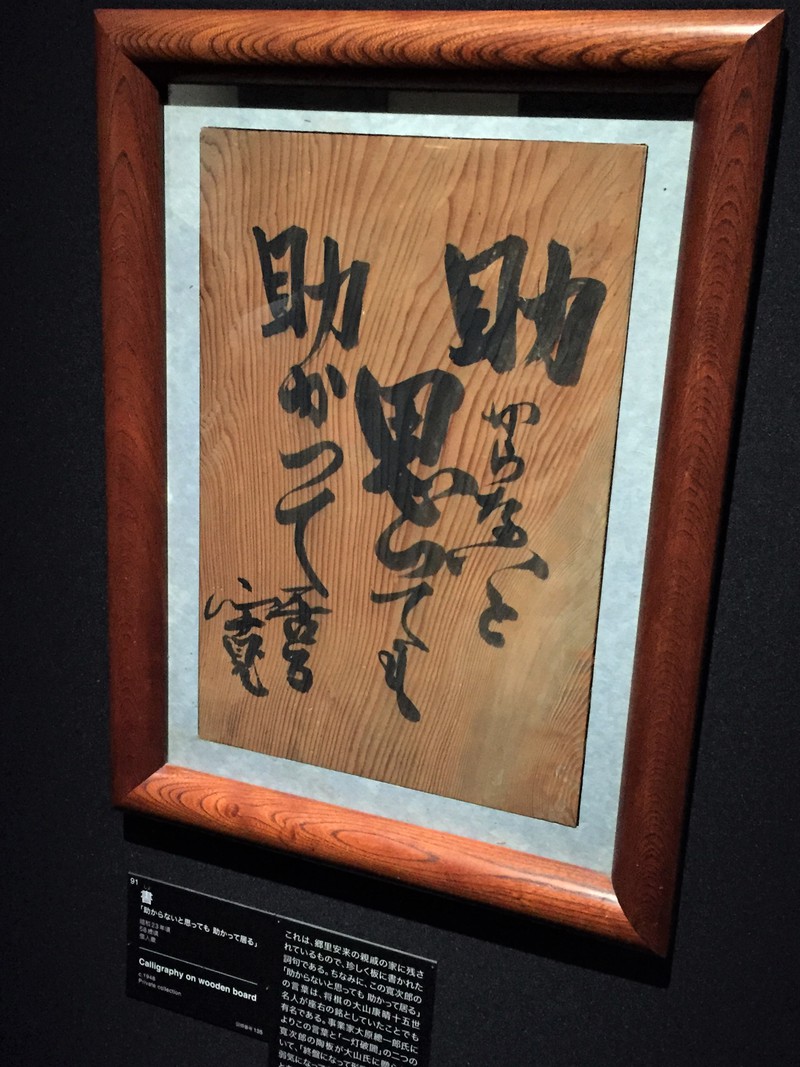 助からないと
思っても
助かって居る
寛
91
書
「助からないと思っても 助かって居る」
昭和23年頃
58歳頃
個人蔵
Calligraphy on wooden board
c.1948
Private collection
これは、郷里安来の親戚の家に残さ
れているもので、珍しく板に書かれた
詞句である。ちなみに、この寛次郎の
「助からないと思っても 助かって居る」
の言葉は、将棋の大山康晴十五世
名人が座右の銘としていたことでも
有名である。事業家大原總一郎氏に
よりこの言葉と「一灯破闇」の二つの
寛次郎の陶板が大山氏に贈ら
いて、「終盤になって
弱気になっ